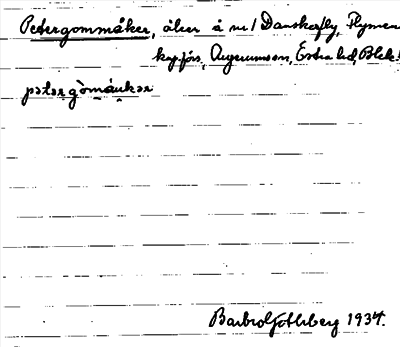 Petergommåker, åker å nr 1 Danskafly, Flymen
s, Augerumsn, Östra hd, Blek.
pətərgòmáukər
Barbro Göthberg 1934.